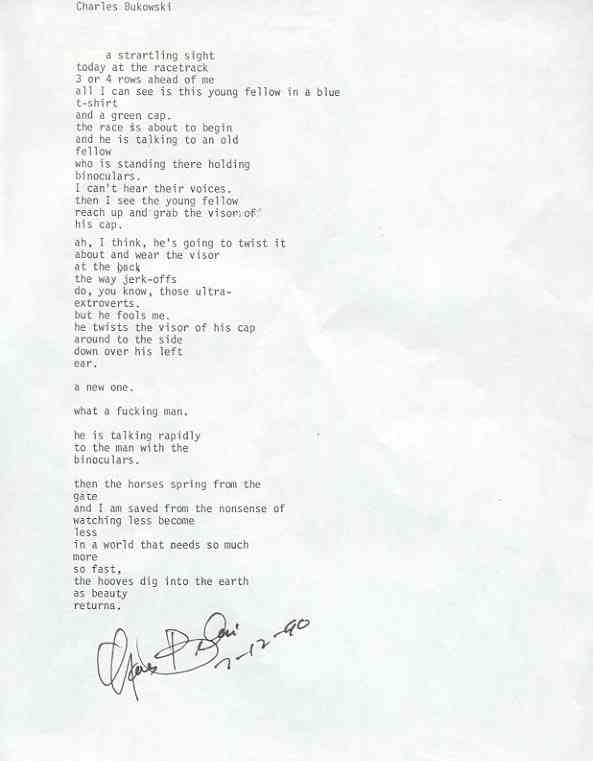 Charles Bukowski
a strartling sight
today at the racetrack
3 or 4 rows ahead of me
all I can see is this young fellow in a blue
t-shirt
and a green cap.
the race is about to begin
and he is talking to an old
fellow
who is standing there holding
binoculars.
I can't hear their voices.
then I see the young fellow
reach up and grab the visor of
his cap.
ah, I think, he's going to twist it
about and wear the visor
at the back
the way jerk-offs
do, you know, those ultra-
extroverts.
but he fools me.
he twists the visor of his cap
around to the side
down over his left
ear.
a new one.
what a fucking man.
he is talking rapidly
to the man with the
binoculars.
then the horses spring from the
gate
and I am saved from the nonsense of
watching less become
less
in a world that needs so much
more
so fast,
the hooves dig into the earth
as beauty
returns.
7-12-90